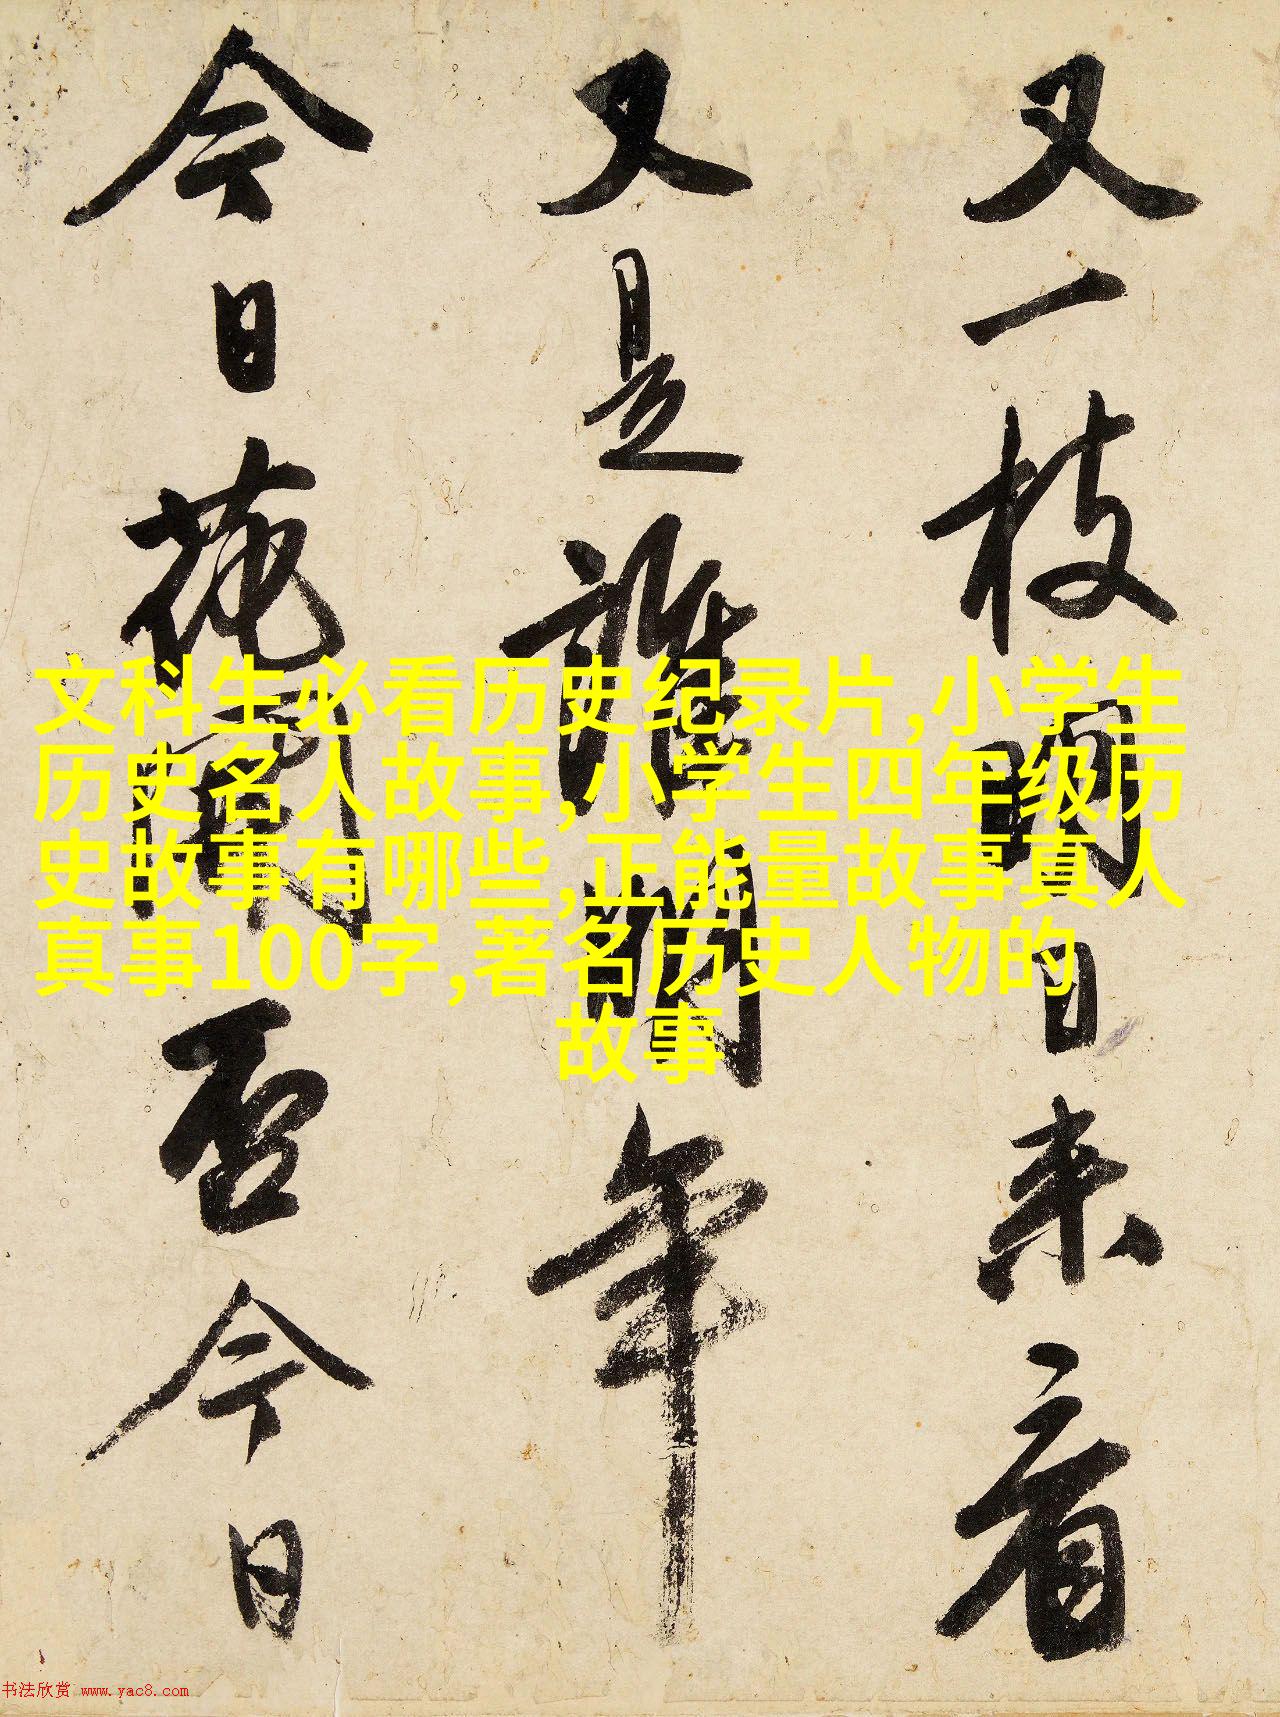 又一枝明日来看
又是誰開年
今日花開否今日
文科生必看历史纪录片,小学生
历史名人故事,小学生四年级历
史故事有哪些,正能量故事真人
真事100字,著名历史人物的
故事
书法欣赏 www.yac8.com